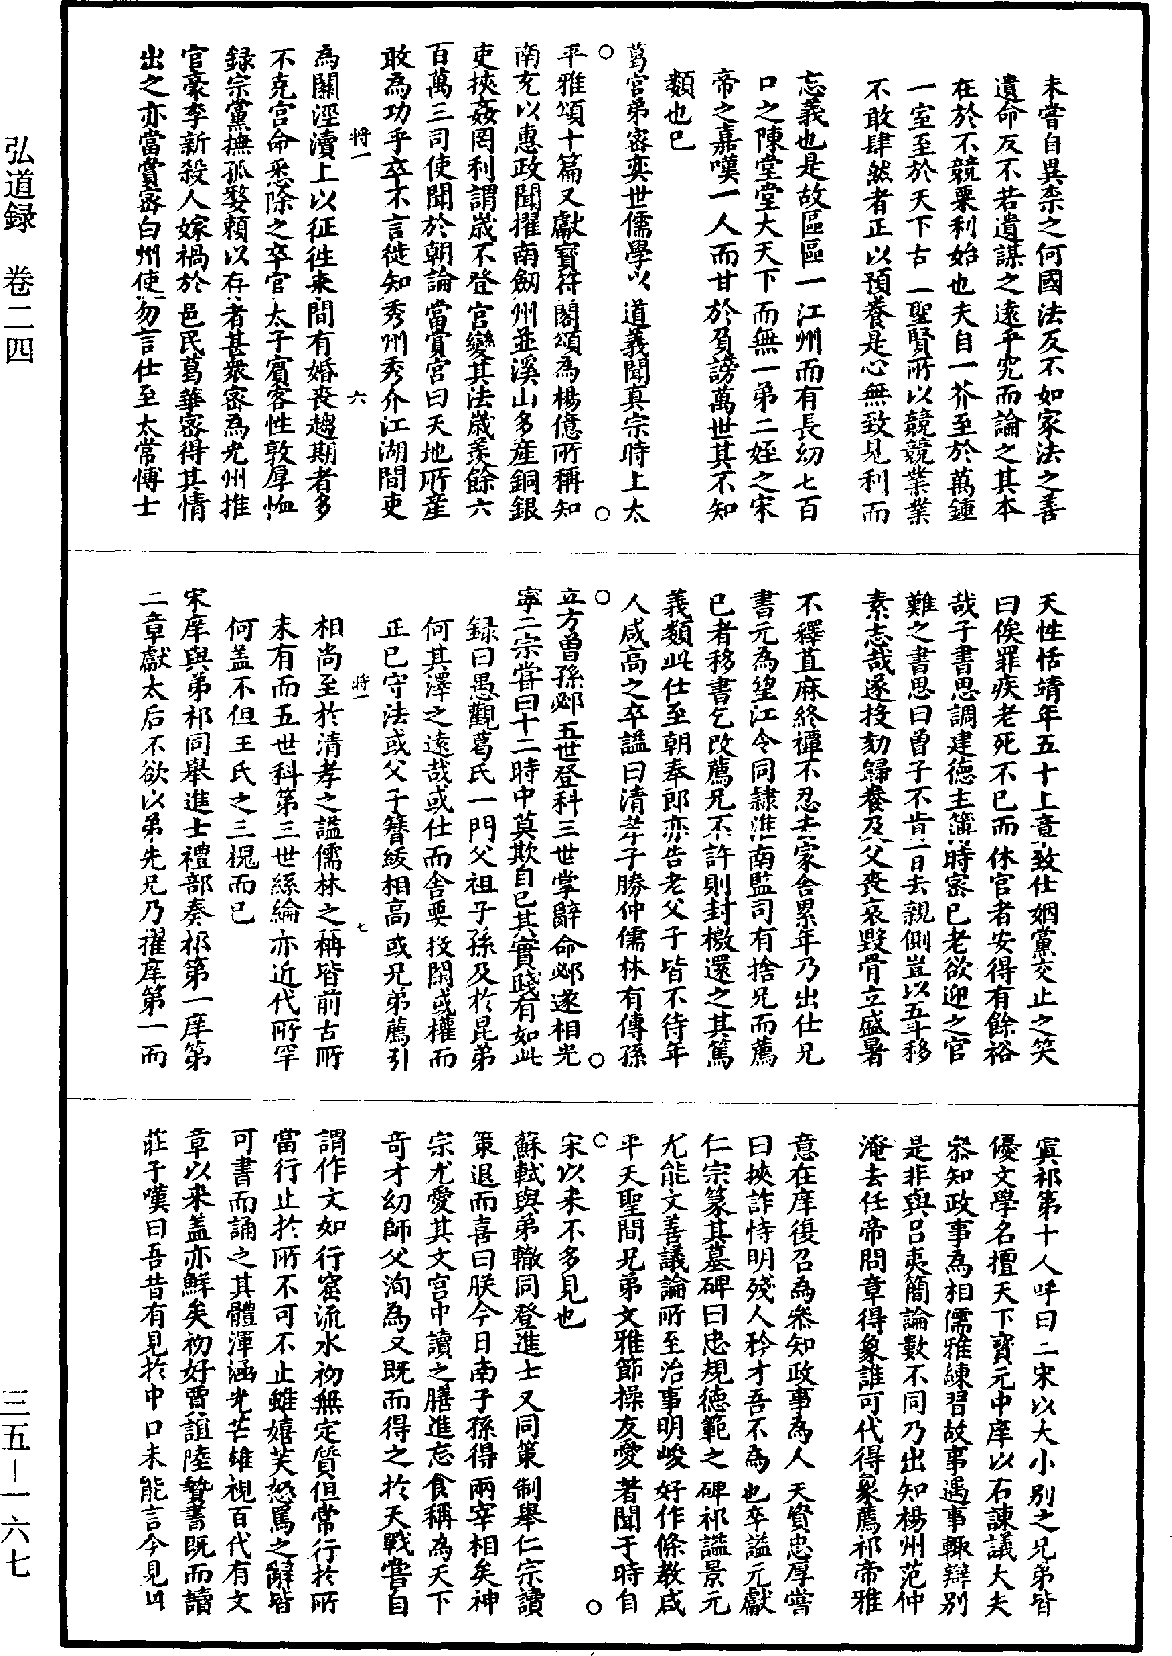 弘道録　卷二四
未嘗自異柰之何國法反不如家法之善
遺命反不若遺謀之遠乎究而論之其本
在於不競粟利始也夫自一芥至於萬鍾
一室至於天下古一聖賢所以競競業業
不敢肆然者正以預養是心無致見利而
忘義也是故區區一江州而有長幼七百
口之陳堂堂大天下而無一弟二姪之宋
帝之嘉嘆一人而甘於負謗萬世其不知
類也已
○
葛宮弟密奕世儒學以道義聞真宗時上太
平雅頌十篇又獻寶符閣頌為楊億所稱知
南充以惠政聞擢南劒州並溪山多產銅銀
吏挾姦罔利謂嵗不登宮變其法嵗羨餘六
百萬三司使聞於朝論當賞宮曰天地所產
敢為功乎卒不言徙知秀州秀介江湖間吏
將一　六
為關涇瀆上以征徃来間有婚喪趨期者多
不克宮命悉除之卒官太子賓客性敦厚恤
録宗黨撫孤嫠頼以存者甚衆密為光州推
官豪李新殺人嫁禍於邑民葛華密得其情
出之亦當賞密白州使勿言仕至太常愽士
天性恬靖年五十上章致仕姻黨交止之笑
曰俟罪疾老死不已而休官者安得有餘裕
哉子書思調建德主簿時密已老欲迎之官
難之書思曰曾子不肯一日去親側豈以五斗移
素志哉遂投劾歸養及父喪哀毀骨立盛暑
不釋苴麻終禫不忍去冢舍累年乃出仕兄
書元為望江令同隷淮南監司有捨兄而薦
己者移書乞改薦兄不許則封檄還之其篤
義類此仕至朝奉郎亦告老父子皆不待年
人咸高之卒謚曰清孝子勝仲儒林有傳孫
○
立方曾孫邲五世登科三世掌辭命邲遂相光
寧二宗嘗曰十二時中莫欺自己其實踐有如此
録曰愚觀葛氏一門父祖子孫及於昆弟
何其澤之遠哉或仕而舍要投閑或權而
正己守法或父子簪綬相高或兄弟薦引
將一　七
相尚至於清孝之謚儒林之稱皆前古所
未有而五世科第三世絲綸亦近代所罕
何盖不但王氏之三槐而已
宋庠與弟祁同舉進士禮部奏祁第一庠第
二章獻太后不欲以弟先兄乃擢庠第一而
寘祁第十人呼曰二宋以大小別之兄弟皆
優文學名擅天下寳元中庠以右諫議大夫
叅知政事為相儒雅練習故事遇事輙辯別
是非與呂夷簡論數不同乃出知楊州范仲
淹去任帝問章得象誰可代得象薦祁帝雅
意在庠復召為叅知政事為人天資忠厚嘗
曰挾詐恃明殘人矜才吾不為也卒謚元獻
仁宗篆其墓碑曰忠規德範之碑祁謚景元
尤能文善議論所至治事明峻好作條教咸
平天聖間兄弟文雅節操友愛著聞于時自
○
宋以来不多見也
蘇軾與弟轍同登進士又同策制舉仁宗讀
策退而喜曰朕今日南子孫得兩宰相矣神
宗尤愛其文宮中讀之膳進忘食稱為天下
奇才幼師父洵為文既而得之於天戰嘗自
謂作文如行雲流水初無定質但常行於所
當行止於所不可不止雖嬉笑怒罵之辭皆
可書而誦之其體渾涵光芒雄視百代有文
章以来盖亦鮮矣初好賈誼陸贄書既而讀
莊子嘆曰吾昔有見於中口未能言今見㠯
三五－一六七